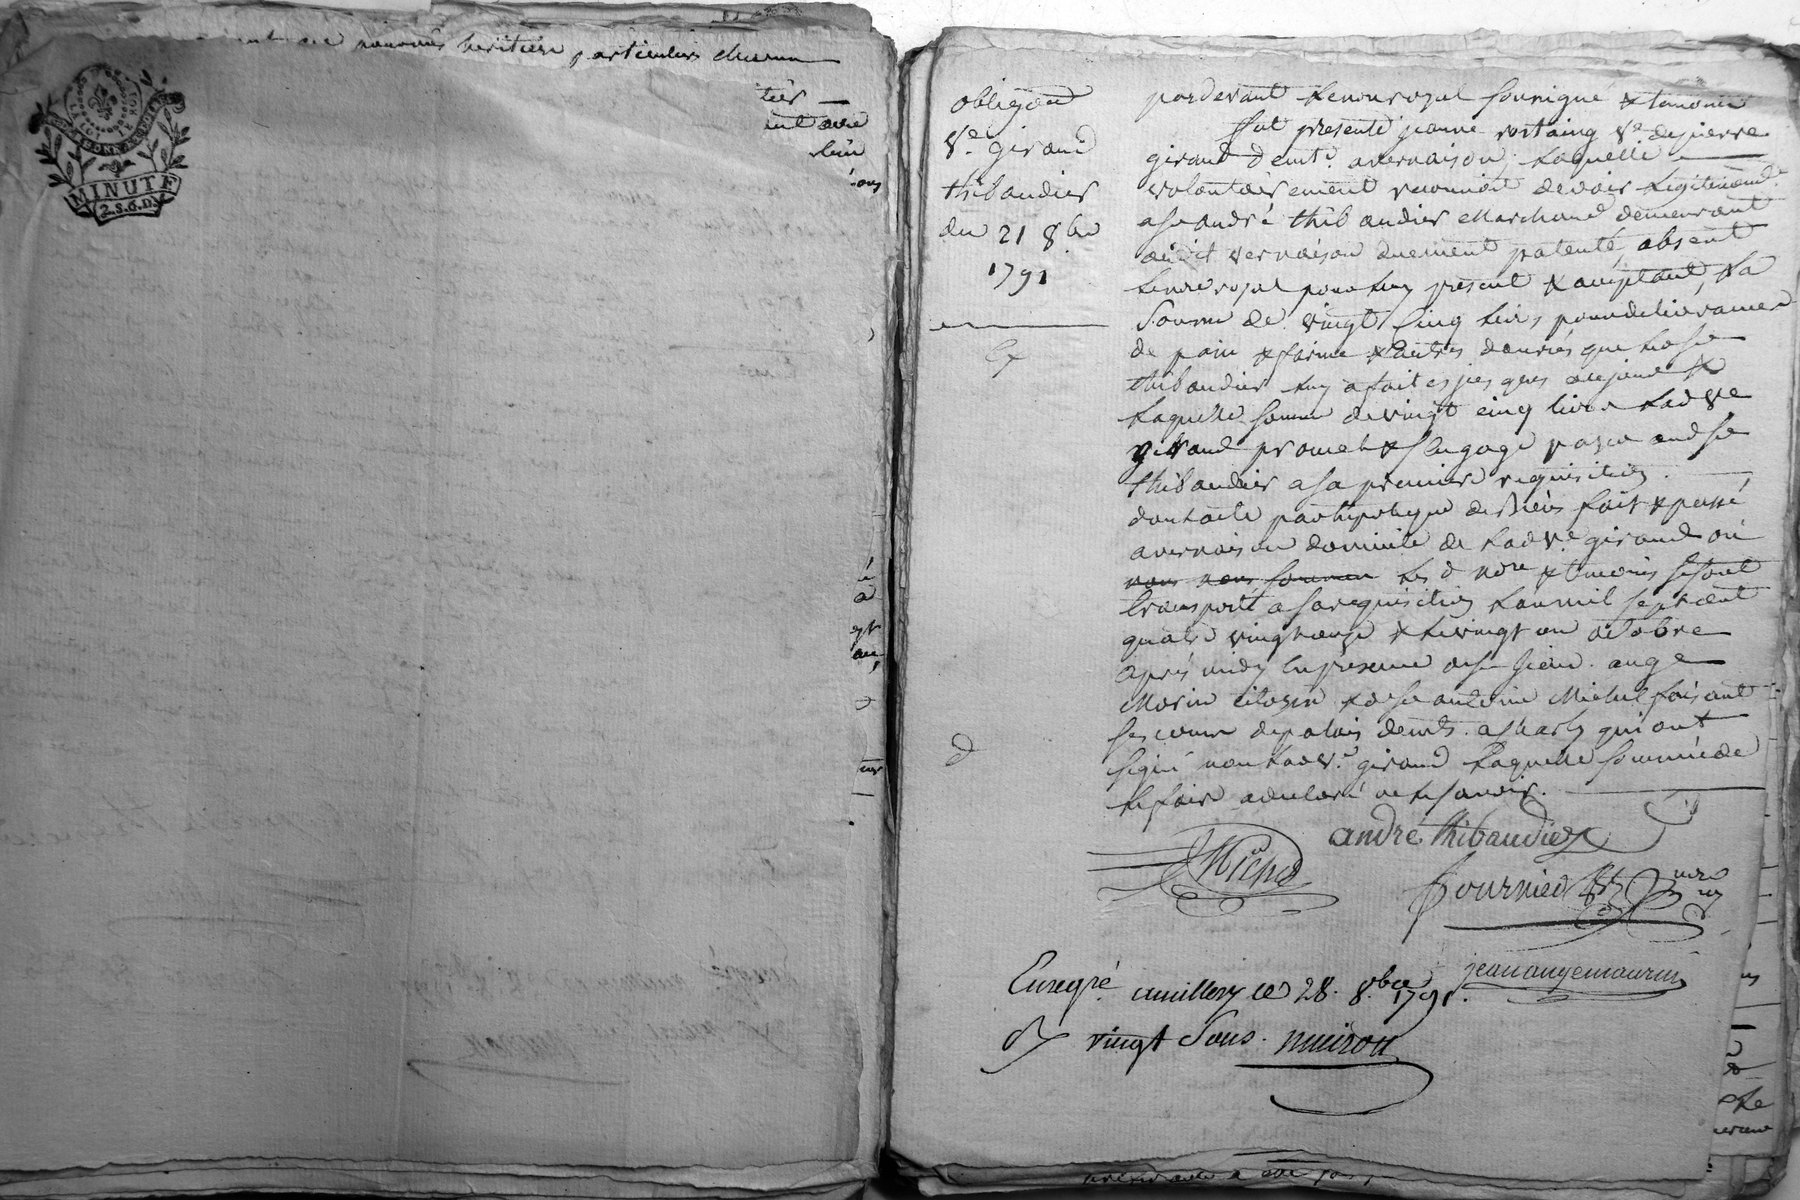 nommés heritiers particuliers chacun
MINUTE
2.S.6.D.
obligaõn
Ve. giraud
thibaudier
du 21 8bre
1791
pardevant Lenore royal soussigné & temoins
fut presente jeanne vortaing Ve. de pierre
giraud demte. a vernaison, Laquelle
volontairement reconnoit devoir Legitimemt.
a sr andré thibaudier Marchand demeurant
audit vernaison duement patenté, absent
Lenore royal pour luy present & acceptant, La
Somme de vingt cinq livres pour delivrance
de pain & farine & autres denrées que led sr
thibaudier luy a fait jusques a ce jour &
Laquelle somme de vingt cinq livres Lad ve
giraud promet & s'engage payer aud sr
thibaudier a sa premiere requisition
dont acte par hipoteque de Biens fait & passé
a vernaison domicile de Lad ve. giraud où
nous nous sommes Les d nore & temoins se sont
transporté a sa requisition L'an mil sept cent
quatre vingt onze & le vingt un octobre
après midy en presence de sr jean ange
Morin citoyen & de sr antoine Michel faisant
ses cours de palais demts. a charly qui ont
signé non Lad ve. giraud Laquelle sommée de
le faire a declaré ne le savoir.
andré thibaudier
Michel
fournier
jean ange maurin
Enregré. a millery le 28. 8bre 1791.
R vingt sous. muiron